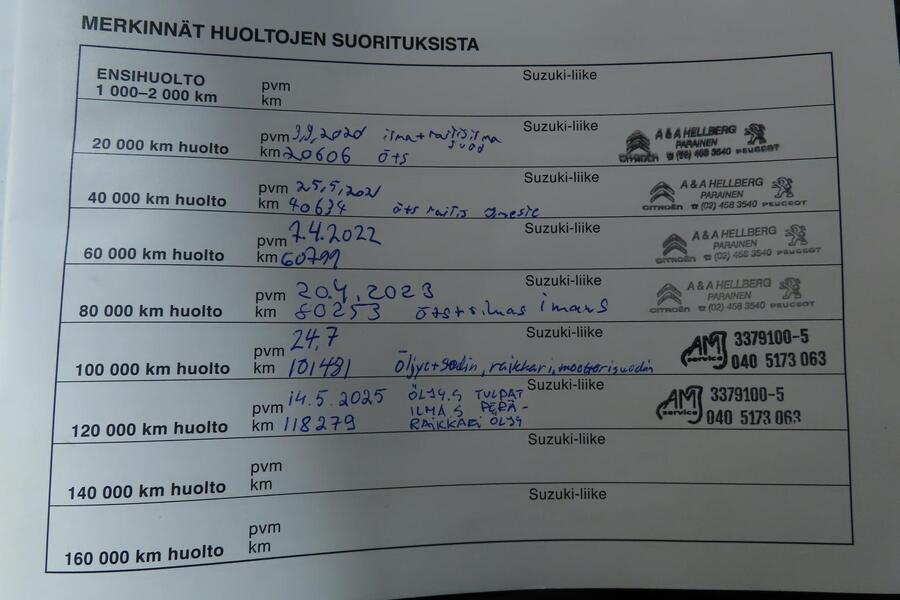 MERKINNÄT HUOLTOJEN SUORITUKSISTA
ENSIHUOLTO
1 000–2 000 km
pvm
km
Suzuki-liike
20 000 km huolto
pvm 3.9.2020 ilma+raitisilma
suod
km 20606 ö+s
Suzuki-liike
A & A HELLBERG
PARAINEN
CITROËN ☎ (02) 458 3540 PEUGEOT
40 000 km huolto
pvm 25.5.2021
km 40634 ö+s raitis
Suzuki-liike
A & A HELLBERG
PARAINEN
CITROËN ☎ (02) 458 3540 PEUGEOT
60 000 km huolto
pvm 7.4.2022
km 60799
Suzuki-liike
A & A HELLBERG
PARAINEN
CITROËN ☎ (02) 458 3540 PEUGEOT
80 000 km huolto
pvm 20.4.2023
km 80253
Suzuki-liike
A & A HELLBERG
PARAINEN
CITROËN ☎ (02) 458 3540 PEUGEOT
100 000 km huolto
pvm 24.7
km 101491 Öljyt+sodin, raikkari, moottorisuodin
Suzuki-liike
AMJ service 3379100-5
040 5173 063
120 000 km huolto
pvm 14.5.2025 ÖLJY.S TULPAT
ILMA.S PERÄ-
km 118279 RAIKKARI ÖLJY
Suzuki-liike
AMJ service 3379100-5
040 5173 063
140 000 km huolto
pvm
km
Suzuki-liike
160 000 km huolto
pvm
km
Suzuki-liike